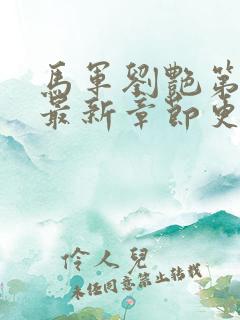 馬軍劉艷第
最新章節更
伶人兒
未經同意禁止轉載